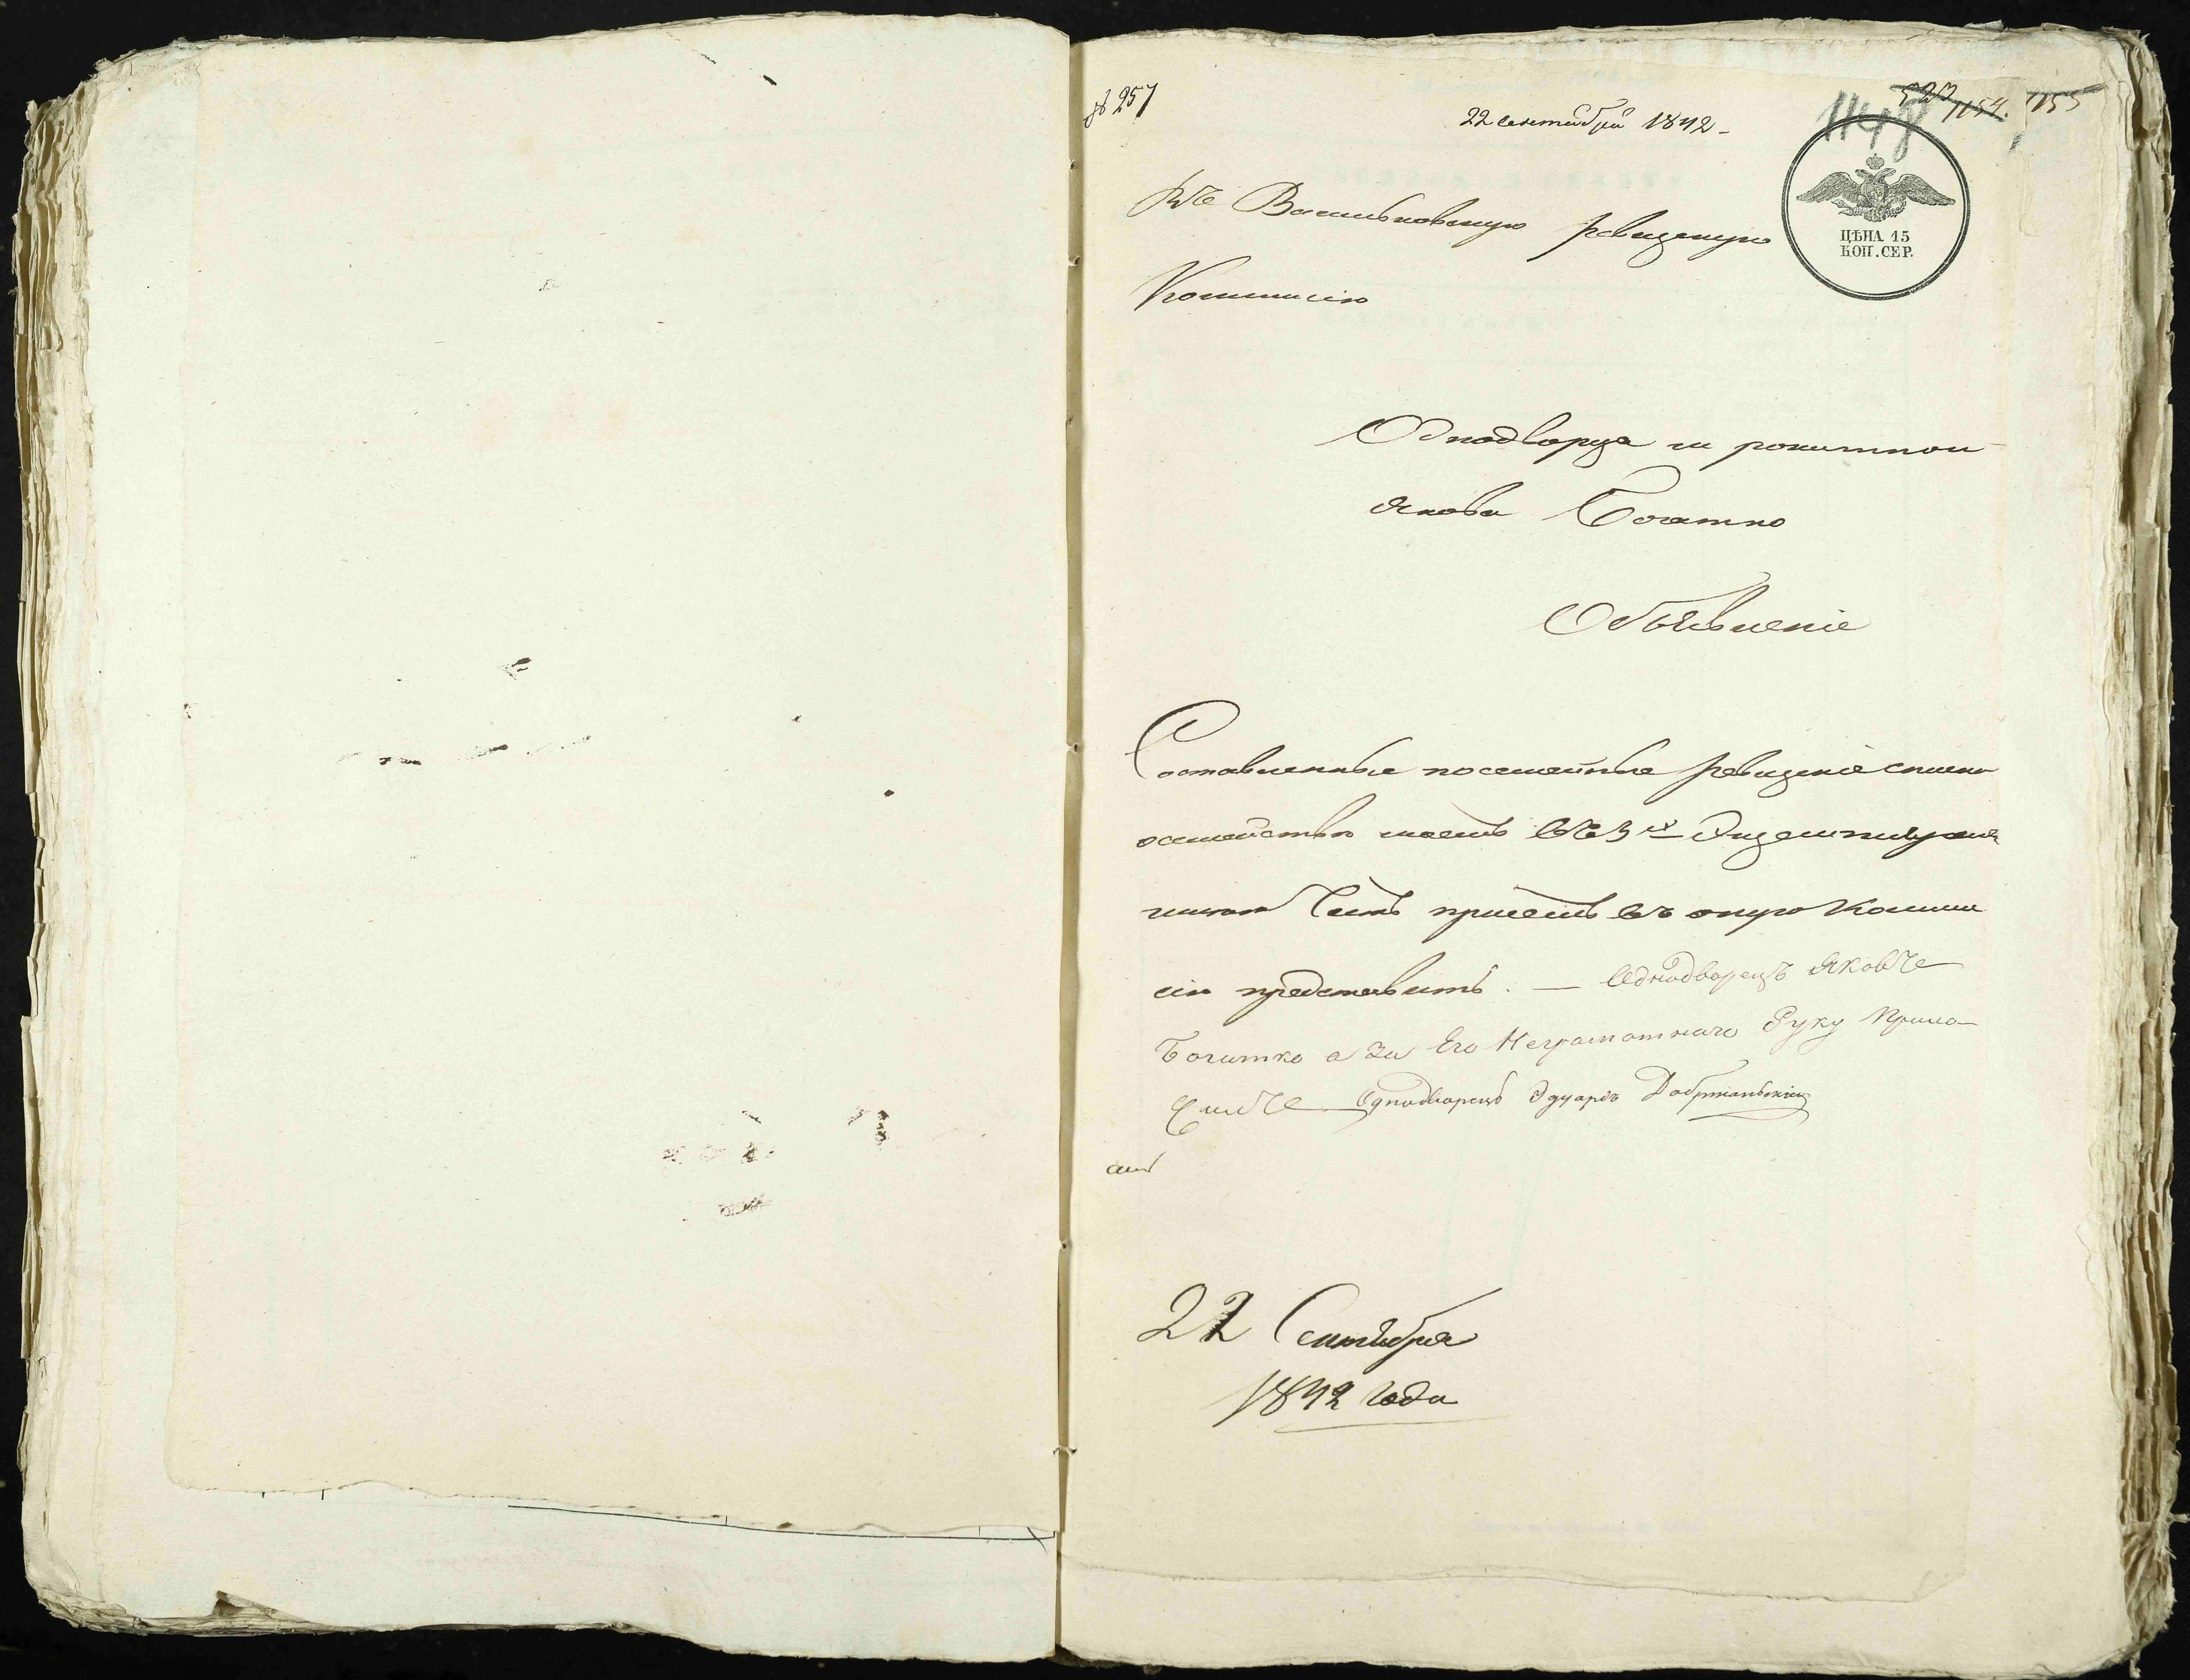 № 257
22 сентебря 1842 -
1148
1154. 1155
ЦѢНА 15
КОП. СЕР.
въ Васильковскую ревизскую
Коммисію
Однодворца м рокитной
Якова Богатко
Объявленіе
Составленные посемейные ревизкіе списки
о семействи моемъ въ 3х Экземплярахъ
имѣю честь при семъ въ оную Комми
сію представить. — Однодворецъ Яковъ
Богатко а за Его Неграмотнаго Руку прило
жилъ Однодворецъ Эдуардъ Добржанскій
22 Сентября
1842 года